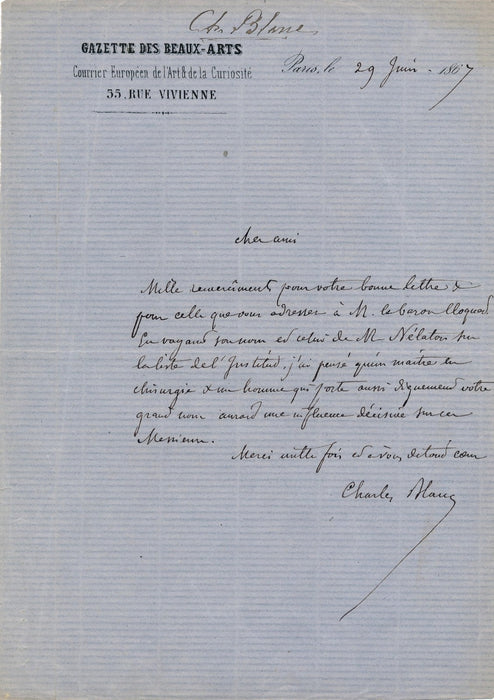 Ch Blanc
GAZETTE DES BEAUX-ARTS
Courrier Européen de l'Art & de la Curiosité
55, RUE VIVIENNE
Paris, le 29 Juin 1867
cher ami
Mille remerciments pour votre bonne lettre &
pour celle que vous adressez à M. le baron Cloquet
En voyant son nom et celui de M Nélaton sur
la liste de l'Institut, j'ai pensé qu'un maître en
chirurgie & un homme qui porte aussi dignement votre
grand nom aurait une influence décisive sur ces
Messieurs.
Merci mille fois et à vous de tout cœur
Charles Blanc